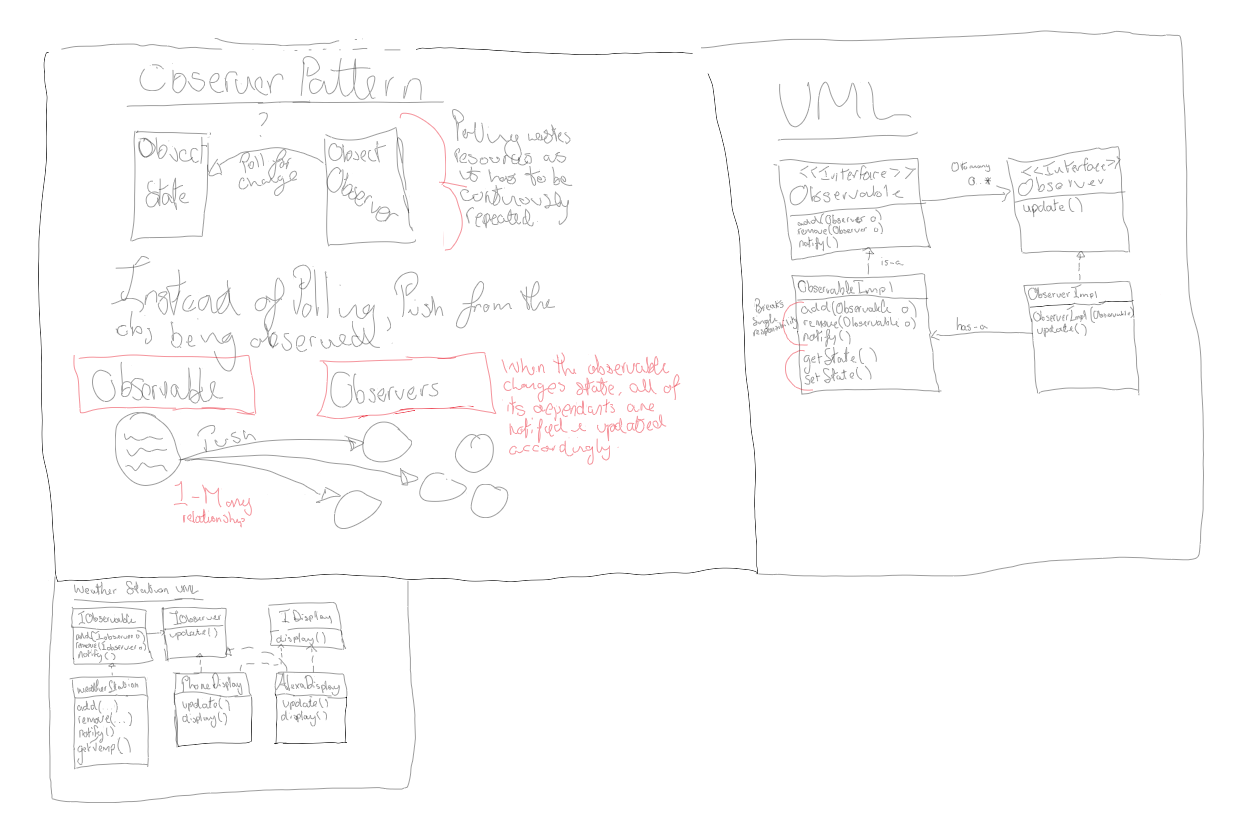 Observer Pattern
?
Object
State
Poll for
change
Object
Observer
Polling wastes
resources as
it has to be
continuously
repeated.
Instead of Polling, Push from the
obj being observed.
Observable
Observers
When the observable
changes state, all of
its dependants are
notified & updated
accordingly.
Push
1-Many
relationship
UML
<<Interface>>
Observable
add(Observer o)
remove(Observer o)
notify()
0 to many
0..*
<<Interface>>
Observer
update()
is-a
ObservableImpl
add(Observable o)
remove(Observable o)
notify()
getState()
setState()
Breaks
single
responsibility
has-a
ObserverImpl
ObserverImpl(Observable)
update()
Weather Station UML
IObservable
add(IObserver o)
remove(IObserver o)
notify()
IObserver
update()
IDisplay
display()
WeatherStation
add(...)
remove(...)
notify()
getTemp()
PhoneDisplay
update()
display()
AlexaDisplay
update()
display()